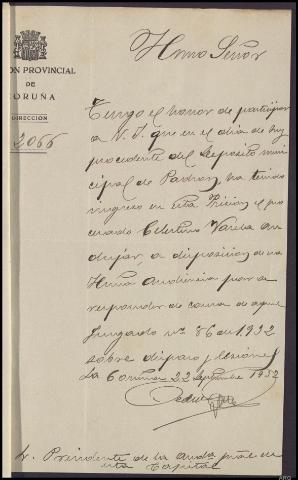 ON PROVINCIAL
DE
ORUÑA
DIRECCIÓN
2066
Ilmo Señor
Tengo el honor de participar
a V. I. que en el dia de hoy
procedente del Deposito muni
cipal de Padron, ha tenido
ingreso en esta Prisión el pro
cesado Celestino Varela An
dujar, a disposicion de esa
Ilma Audiencia para
responder de causa de aquel
Juzgado nº 86 de 1932
sobre disparo y lesiones
La Coruña 22 Septiembre 1932
Sr. Presidente de la Audª provª de
esta Capital
ARG